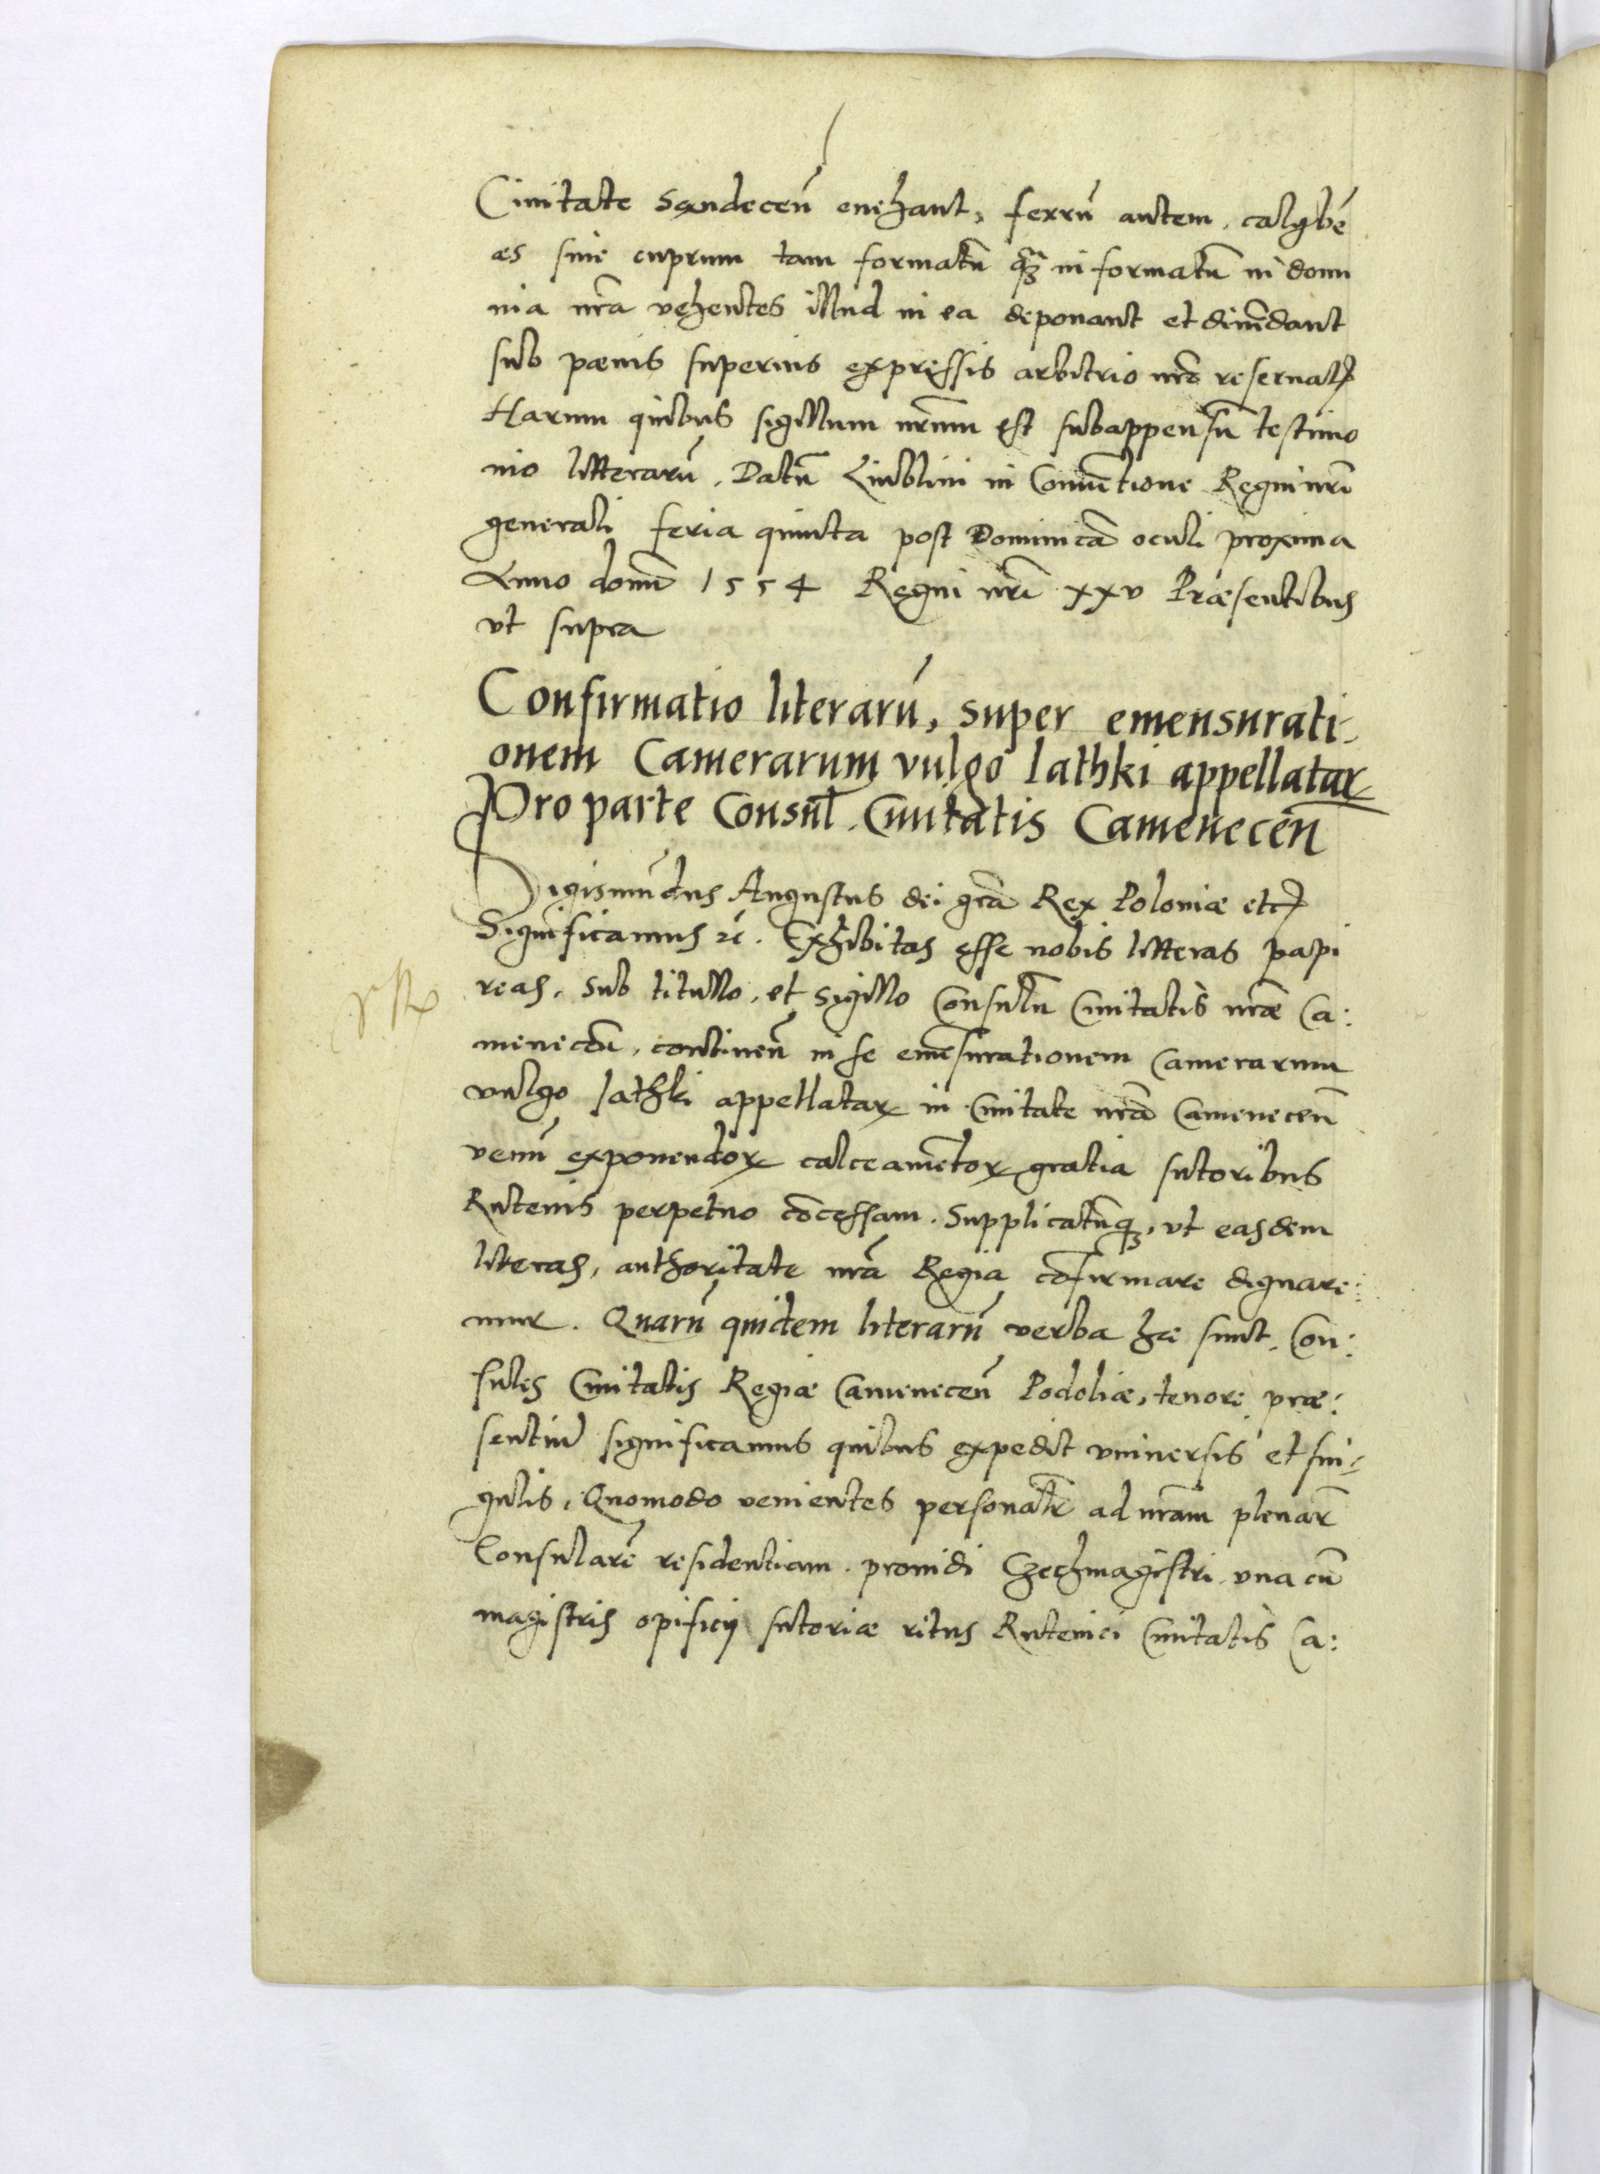 Ciuitate Sandeceñ euehant, ferrũ autem, calybẽ
æs siue cuprum tam formatũ q̃ȝ informatũ in domi
nia nrã vehentes illud in ea deponant et diuẽdant
sub pœnis superius expressis arbitrio nrõ reseruatꝭ
Harum quibus sigillum nrũm est subappensũ testimo
nio litterarũ. Datũ Liublini in Conuẽtione Regni nrĩ
generali feria quinta post Dominicã oculi proxima
Anno domĩ 1554 Regni nrĩ xxv Præsentibus
vt supra
Confirmatio literarũ, super emensurati-
onem Camerarum vulgo lathki appellatar
Pro parte Consul. Ciuitatis Cameneceñ
Sigismũdus Augustus dei grã Rex Poloniæ etcꝭ
Significamus ꝛc. Exhibitas esse nobis litteras papi
reas, sub titullo, et sigillo Consulũ Ciuitatis nræ̃ Ca:
meneceñ, continẽñ in se emẽsurationem Camerarum
vulgo lathki appellataꝝ in Ciuitate nrã Cameneceñ
venũ exponendoꝝ calceamẽtoꝝ gratia sutoribus
Rutenis perpetuo cõcessam. Supplicatũqȝ, vt easdem
literas, authoritate nrã Regia cõfirmare dignare:
mur. Quarũ quidem literarũ verba hæ sunt. Con:
sules Ciuitatis Regiæ Cameneceñ Podoliæ, tenore præ:
sentiũ significamus quibus expedit vniuersis et sin-
gulis, Quomodo venientes personalr̃ ad nrãm plenar̃
Consularẽ residentiam. prouidi Czechmagistri vna cũ
magistris opificij sutoriæ ritus Rutenici Ciuitatis Ca: